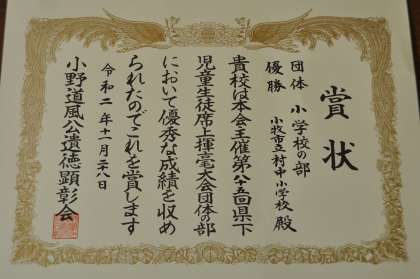 賞状
団体 小学校の部
優勝 小牧市立村中小学校 殿
貴校は本会主催第八十五回県下
児童生徒席上揮毫大会団体の部
において優秀な成績を収め
られたのでこれを賞します
令和二年十一月二十八日
小野道風公遺徳顕彰会